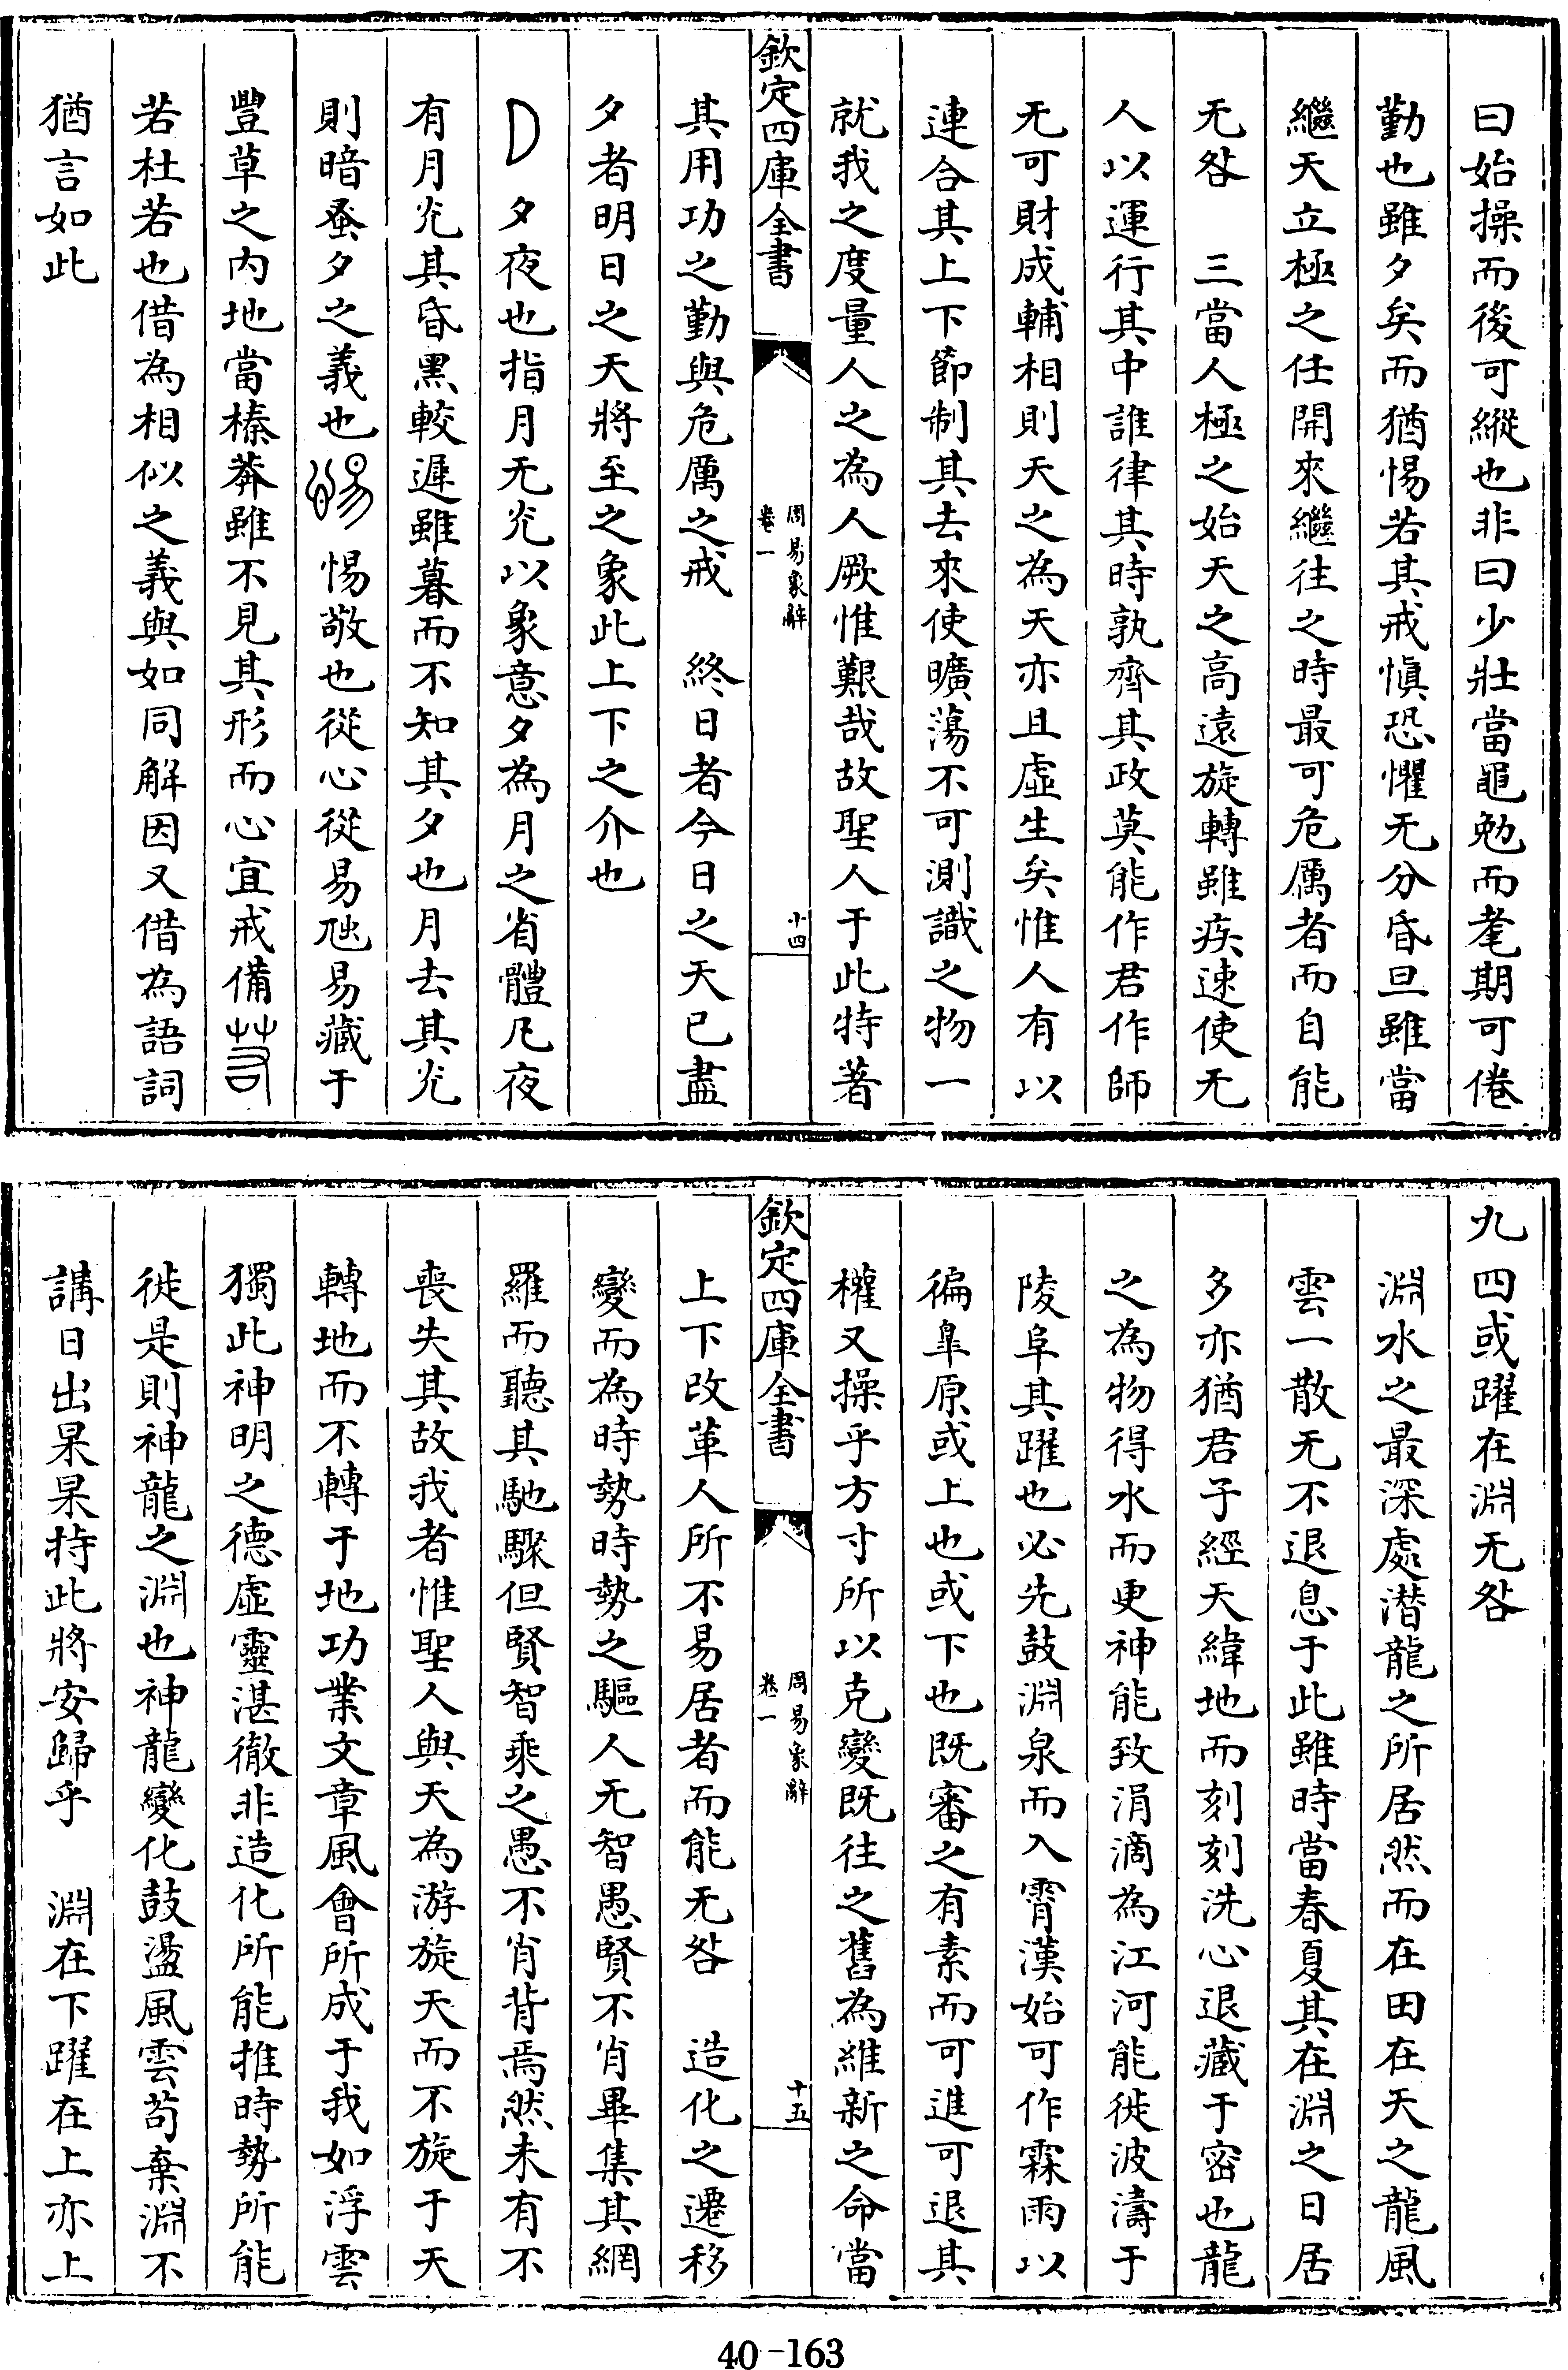 曰始操而後可縱也非曰少壯當黽勉而耄期可倦
勤也雖夕矣而猶惕若其戒慎恐懼无分昏旦雖當
繼天立極之任開來繼往之時最可危厲者而自能
无咎　三當人極之始天之高遠旋轉雖疾速使无
人以運行其中誰律其時孰齊其政莫能作君作師
无可財成輔相則天之為天亦且虛生矣惟人有以
連合其上下節制其去來使曠蕩不可測識之物一
就我之度量人之為人厥惟艱哉故聖人于此特著
欽定四庫全書
周易象辭
卷一
十四
其用功之勤與危厲之戒　終日者今日之天已盡
夕者明日之天將至之象此上下之介也
夕夜也指月无光以象意夕為月之省體凡夜
有月光其昏黑較遲雖暮而不知其夕也月去其光
則暗蚤夕之義也　惕敬也從心從易虺易藏于
豐草之內地當榛莽雖不見其形而心宜戒備
若杜若也借為相似之義與如同解因又借為語詞
猶言如此
九四或躍在淵无咎
淵水之最深處潛龍之所居然而在田在天之龍風
雲一散无不退息于此雖時當春夏其在淵之日居
多亦猶君子經天緯地而刻刻洗心退藏于密也龍
之為物得水而更神能致涓滴為江河能徙波濤于
陵阜其躍也必先鼓淵泉而入霄漢始可作霖雨以
徧臯原或上也或下也既審之有素而可進可退其
權又操乎方寸所以克變既往之舊為維新之命當
欽定四庫全書
周易象辭
卷一
十五
上下改革人所不易居者而能无咎　造化之遷移
變而為時勢時勢之驅人无智愚賢不肖畢集其網
羅而聽其馳驟但賢智乘之愚不肖背焉然未有不
喪失其故我者惟聖人與天為游旋天而不旋于天
轉地而不轉于地功業文章風會所成于我如浮雲
獨此神明之德虛靈湛徹非造化所能推時勢所能
徙是則神龍之淵也神龍變化鼓盪風雲苟棄淵不
講日出杲杲持此將安歸乎　淵在下躍在上亦上
40-163